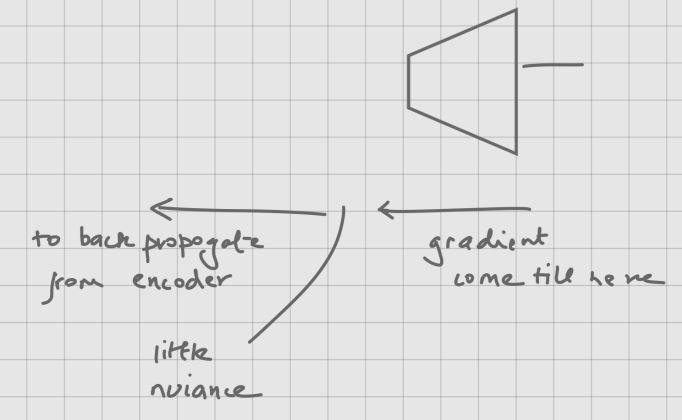 to back propogate
from encoder
gradient
come till here
little
nuiance